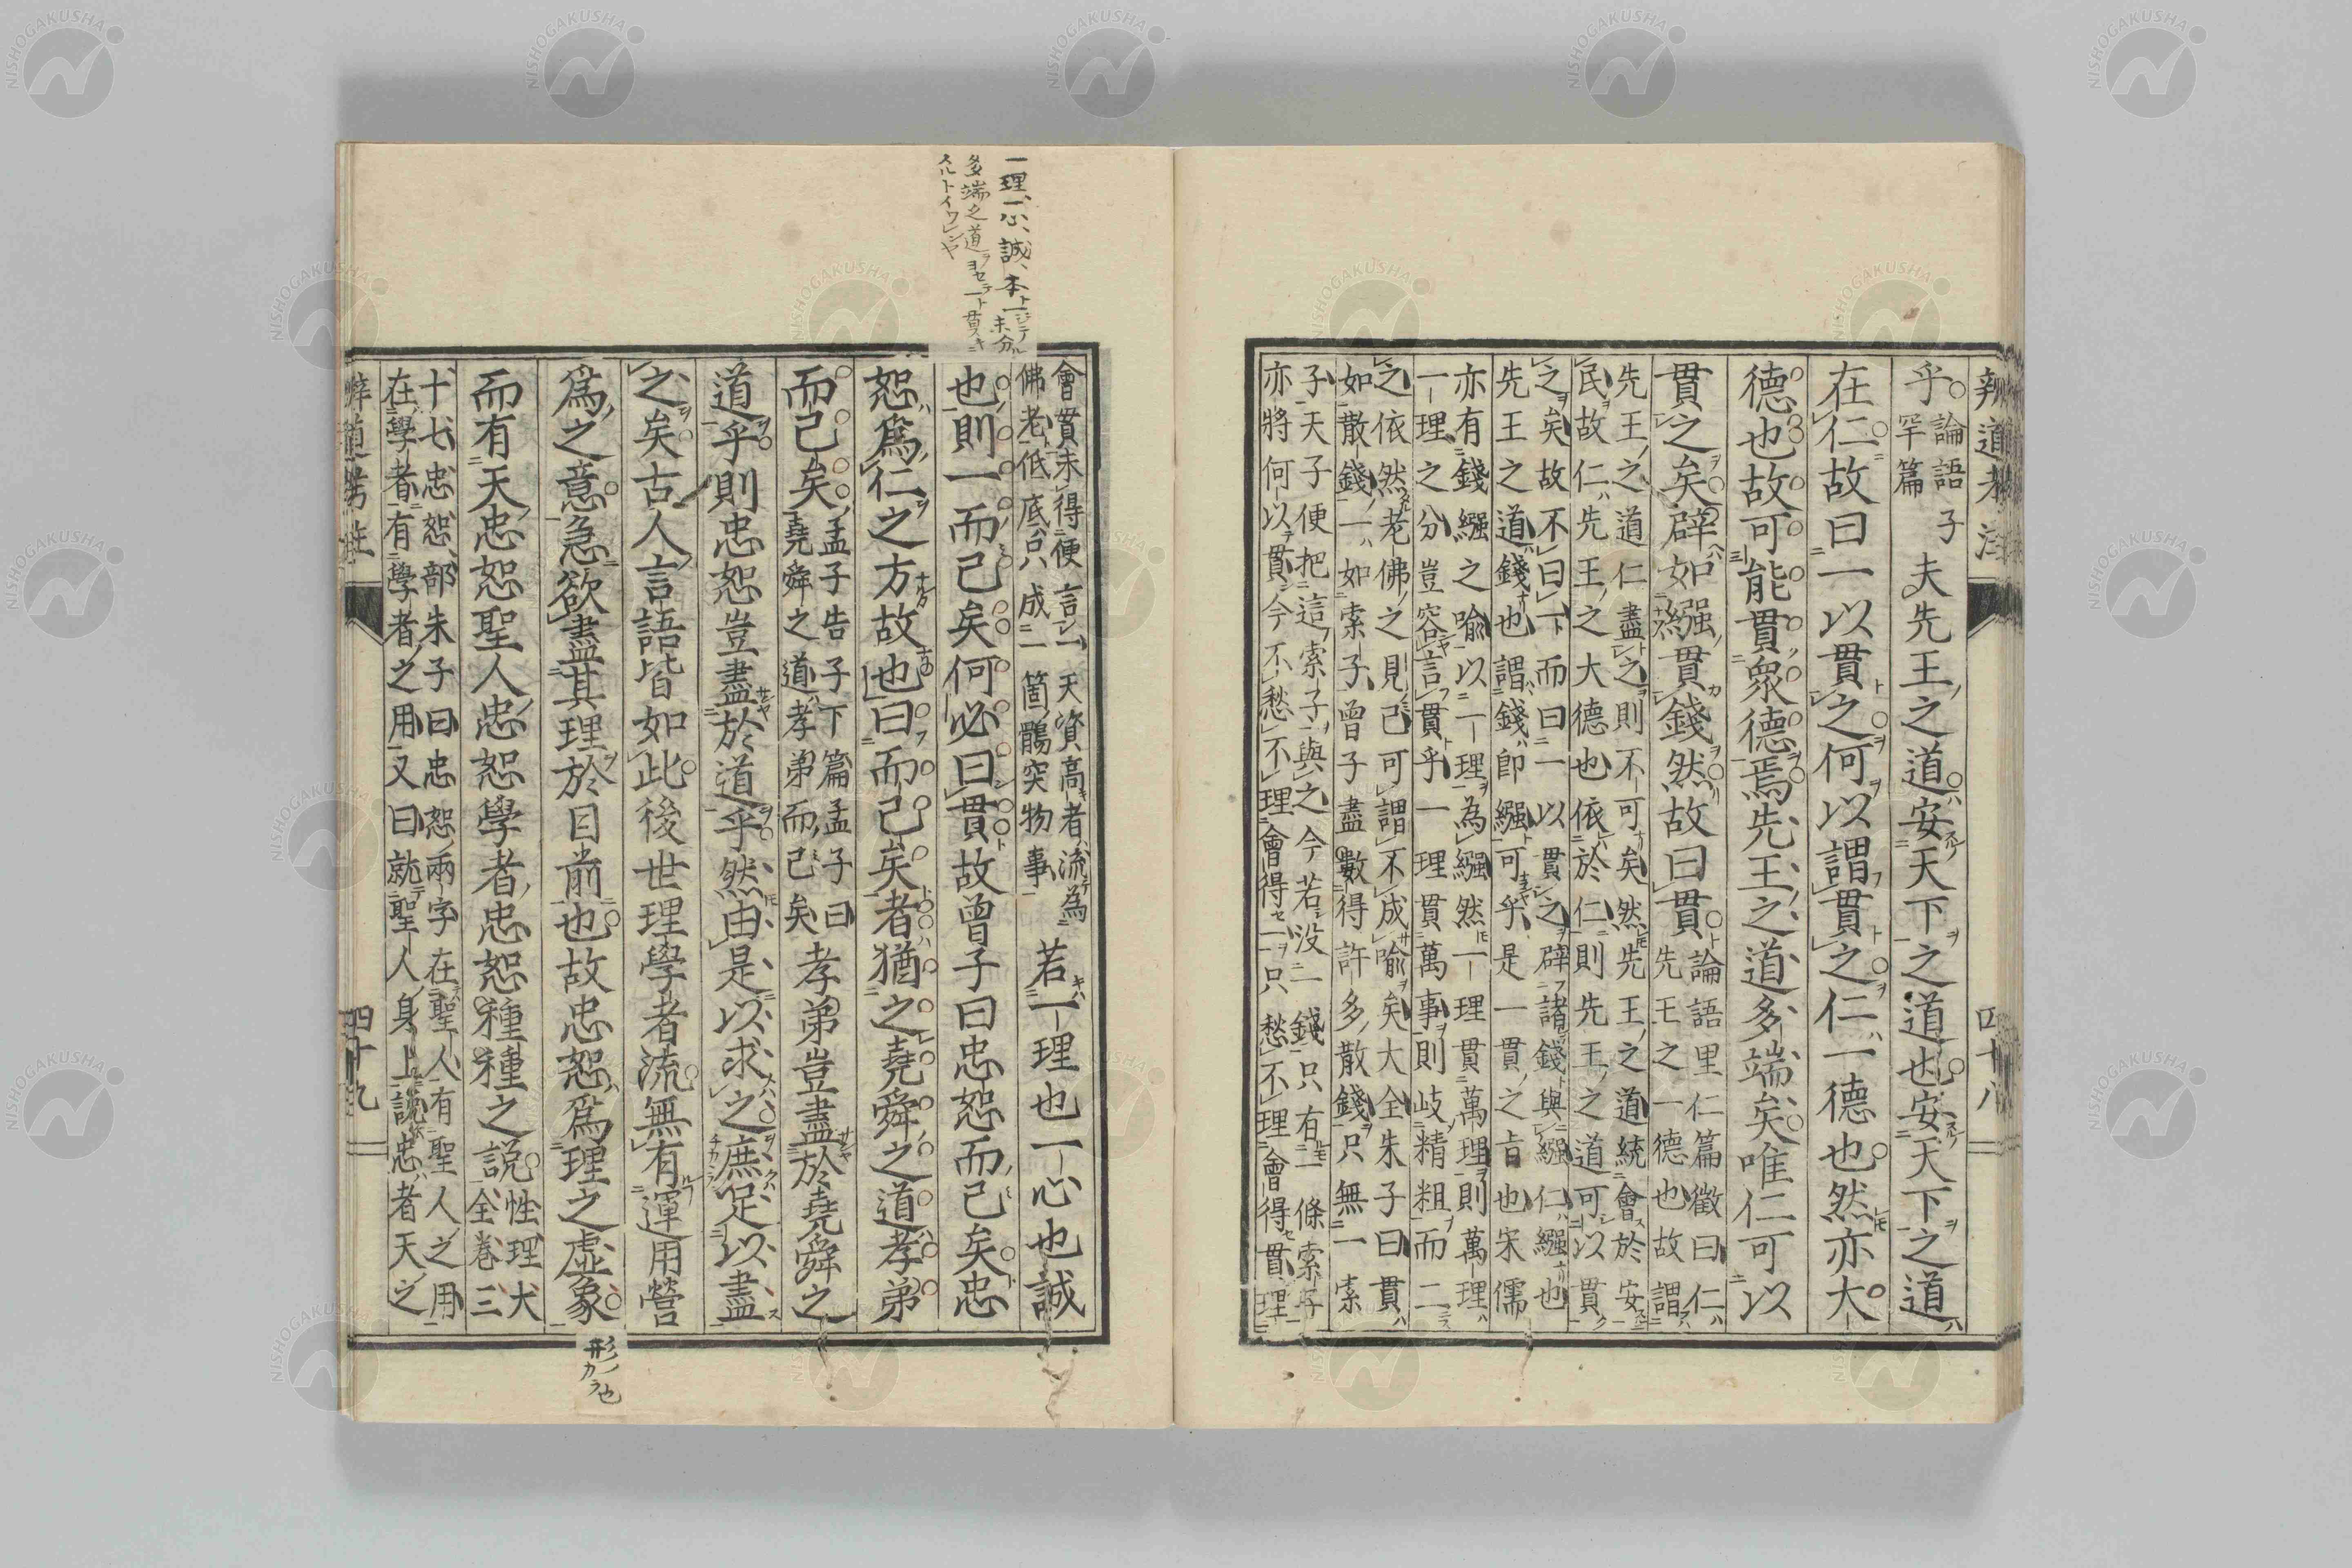 辨道考注 四十八
乎論語子罕篇夫先王之道安天下之道也安天下之道
在仁故曰一以貫之何以謂貫之仁一德也然亦大
德也故可能貫衆德焉先王之道多端矣唯仁可以
貫之矣辟如繦貫錢然故曰貫
論語里仁篇徵曰仁
先王之一德也故謂
先王之道仁盡之則不可矣然先王之道統會於安
民故仁先王之大德也依於仁則先王之道可以貫
之矣故不曰一而曰一以貫之辟諸錢與繦仁繦也
先王之道錢也謂錢即繦可乎是一貫之旨也宋儒
亦有錢繦之喩以一理為繦然一理貫萬理則萬理
一理之分豈容言貫乎一理貫萬事則岐精粗而二
之依然老佛之見已可謂不成喩矣大全朱子曰貫
如散錢一如索子曾子盡數得許多散錢只無一索
子天子便把這索子與之今若沒一錢只有一條索子
亦將何以貫今不愁不理會得一只愁不理會得貫理
會貫未得便言一天資高者流為
佛老低底只成一箇鶻突物事
若一理也一心也誠
也則一而已矣何必曰貫故曾子曰忠恕而已矣忠
恕爲仁之方故也曰而已矣者猶之堯舜之道孝弟
而已矣
孟子告子下篇孟子曰
堯舜之道孝弟而已矣
孝弟豈盡於堯舜之
道乎則忠恕豈盡於道乎然由是以求之庶足以盡
之矣古人言語皆如此後世理學者流無有運用營
爲之意急欲盡其理於目前也故忠恕爲理之虛象
而有天忠恕聖人忠恕學者忠恕種種之說
性理大
全卷三
十七忠恕部朱子曰忠恕兩字在聖人有聖人之用
在學者有學者之用又曰就聖人身上說忠者天之
辨道考注 四十九
一理、一心、誠、本
多端之道
形ノ也
カラ